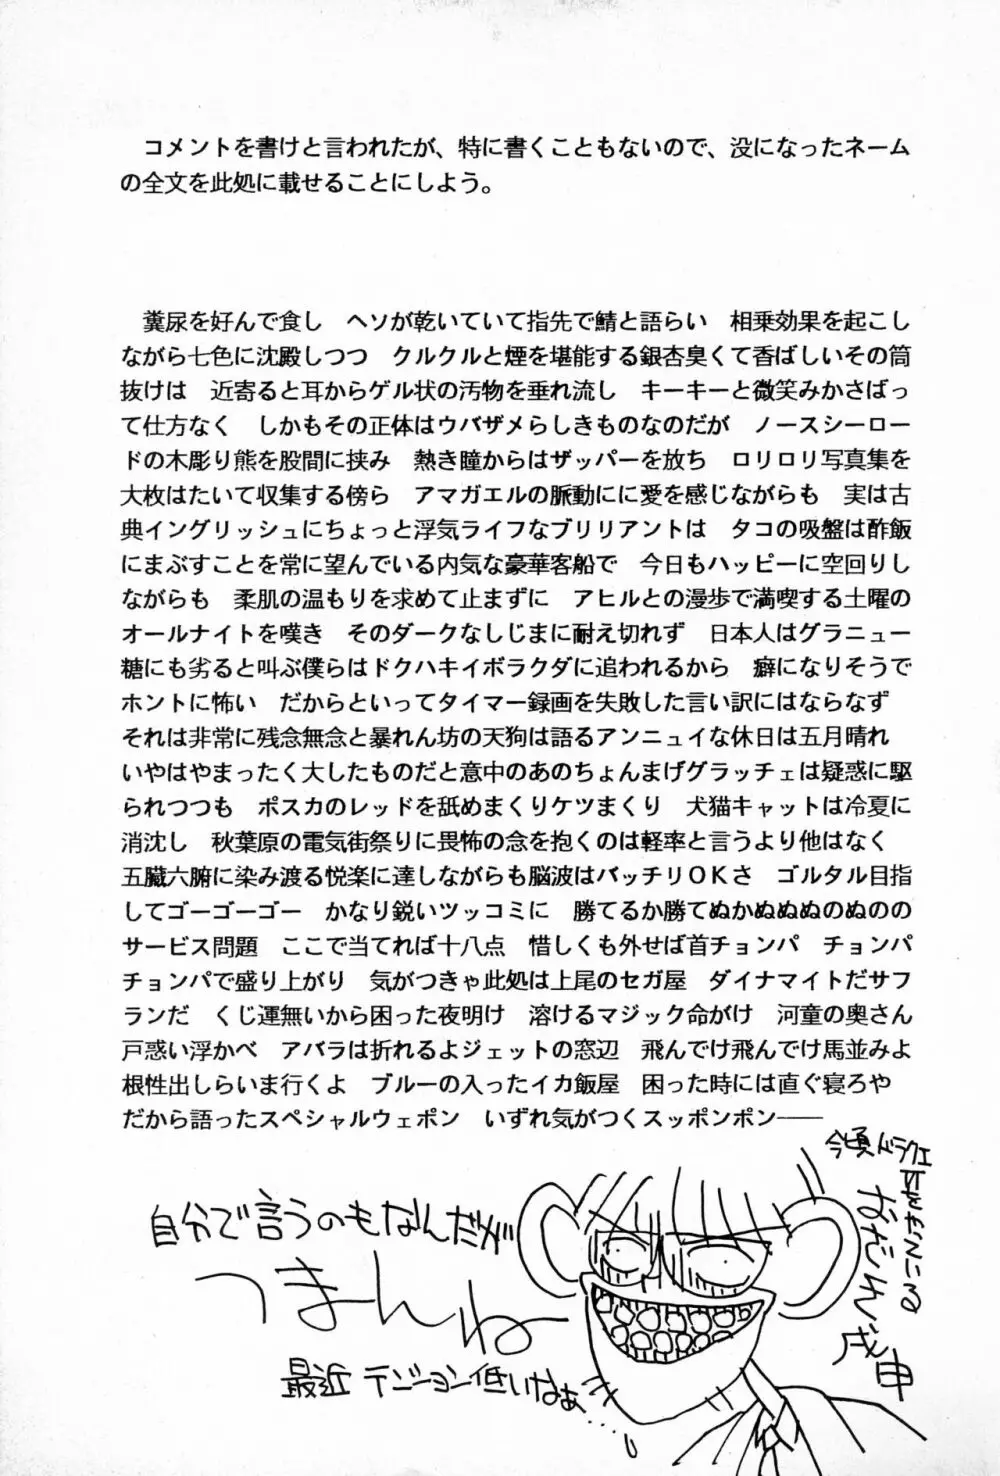 コメントを書けと言われたが、特に書くこともないので、没になったネーム
の全文を此処に載せることにしよう。
糞尿を好んで食し　ヘソが乾いていて指先で鯖と語らい　相乗効果を起こし
ながら七色に沈殿しつつ　クルクルと煙を堪能する銀杏臭くて香ばしいその筒
抜けは　近寄ると耳からゲル状の汚物を垂れ流し　キーキーと微笑みかさばっ
て仕方なく　しかもその正体はウバザメらしきものなのだが　ノースシーロー
ドの木彫り熊を股間に挟み　熱き瞳からはザッパーを放ち　ロリロリ写真集を
大枚はたいて収集する傍ら　アマガエルの脈動にに愛を感じながらも　実は古
典イングリッシュにちょっと浮気ライフなブリリアントは　タコの吸盤は酢飯
にまぶすことを常に望んでいる内気な豪華客船で　今日もハッピーに空回りし
ながらも　柔肌の温もりを求めて止まずに　アヒルとの漫歩で満喫する土曜の
オールナイトを嘆き　そのダークなしじまに耐え切れず　日本人はグラニュー
糖にも劣ると叫ぶ僕らはドクハキイボラクダに追われるから　癖になりそうで
ホントに怖い　だからといってタイマー録画を失敗した言い訳にはならなず
それは非常に残念無念と暴れん坊の天狗は語るアンニュイな休日は五月晴れ
いやはやまったく大したものだと意中のあのちょんまげグラッチェは疑惑に駆
られつつも　ポスカのレッドを舐めまくりケツまくり　犬猫キャットは冷夏に
消沈し　秋葉原の電気街祭りに畏怖の念を抱くのは軽率と言うより他はなく
五臓六腑に染み渡る悦楽に達しながらも脳波はバッチリＯＫさ　ゴルタル目指
してゴーゴーゴー　かなり鋭いツッコミに　勝てるか勝てぬかぬぬぬのぬのの
サービス問題　ここで当てれば十八点　惜しくも外せば首チョンパ　チョンパ
チョンパで盛り上がり　気がつきゃ此処は上尾のセガ屋　ダイナマイトだサフ
ランだ　くじ運無いから困った夜明け　溶けるマジック命がけ　河童の奥さん
戸惑い浮かべ　アバラは折れるよジェットの窓辺　飛んでけ飛んでけ馬並みよ
根性出しらいま行くよ　ブルーの入ったイカ飯屋　困った時には直ぐ寝ろや
だから語ったスペシャルウェポン　いずれ気がつくスッポンポン――
今頃ドラクエ
自分で言うのもなんだが
つまんね
最近テンション低いなぁ…